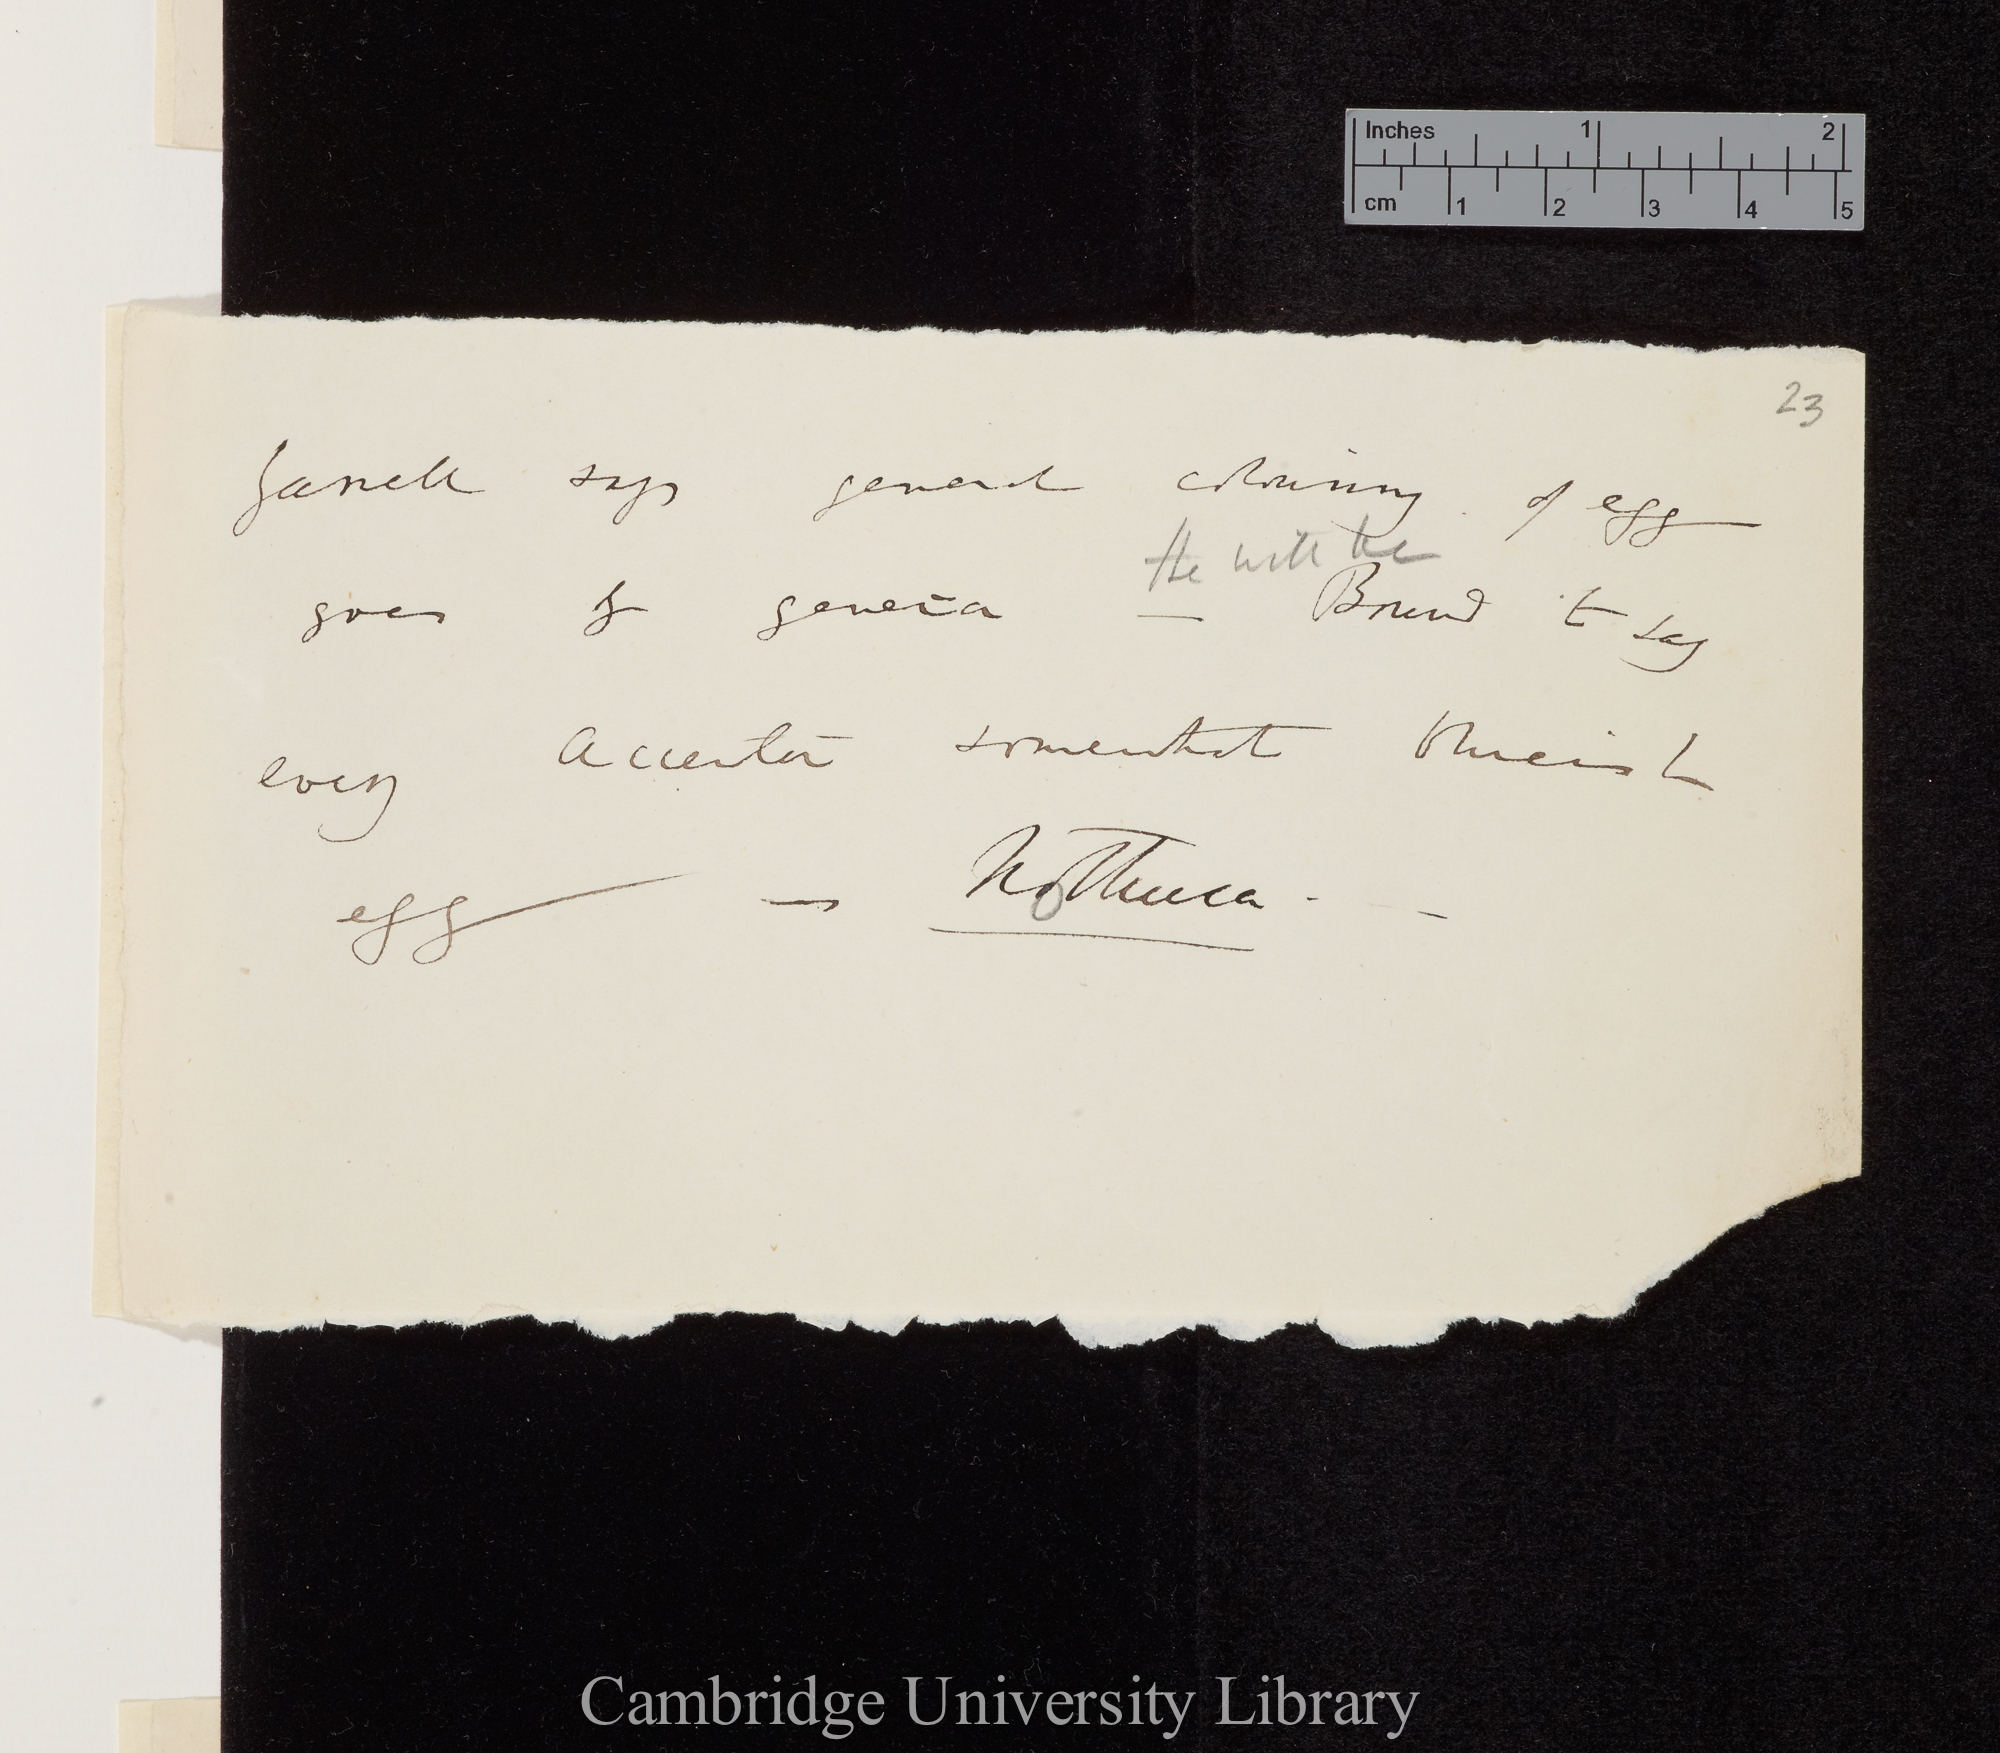 Inches 1 2
cm 1 2 3 4 5
23
Yarrell says general colouring of egg
goes by genera — He will be Bound to say
every Accentor somewhat blueish
egg — Nothura. —
Cambridge University Library